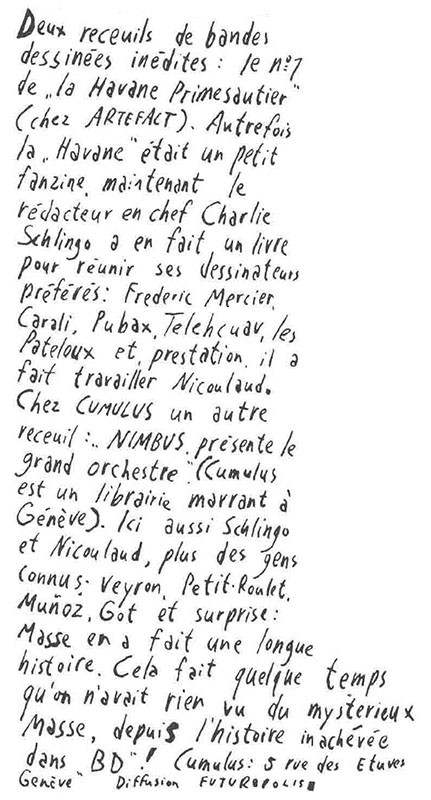 Deux receuils de bandes
dessinées inédites : le nº1
de „la Havane Primesautier"
(chez ARTEFALT). Autrefois
la „Havane" était un petit
fanzine, maintenant le
rédacteur en chef Charlie
Schlingo a en fait un livre
pour réunir ses dessinateurs
préférés: Frederic Mercier,
Carali, Pubax, Telehcuav, les
Pateloux et, prestation, il a
fait travailler Nicoulaud.
Chez CUMULUS un autre
receuil :„ NIMBUS, présente le
grand orchestre". (Cumulus
est un librairie marrant à
Génève). Ici aussi Schlingo
et Nicoulaud, plus des gens
connus: Veyron, Petit-Roulet,
Muñoz, Got et surprise :
Masse en a fait une longue
histoire. Cela fait quelque temps
qu'on n'avait rien vu du mystérieux
Masse, depuis l'histoire inachévée
dans "BD"! Cumulus: 5 rue des Etuves
Genève" Diffusion FUTUROPOLIS